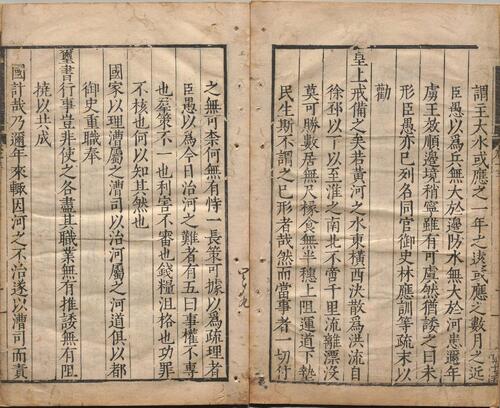 謂王大水或應之一年之遠或應之數月之近
臣愚以為兵無大於邊防水無大於河患邇年
虜王效順邊境稍寧雖有可虞然猶諉之曰未
形臣愚亦已列名同官御史林應訓等疏末以
勸
皇上戒備之矣若黃河之水東橫西決散為洪流自
徐邳以下以至淮之南北不啻千里流離漂沒
莫可勝數居無尺椽食無半穗上阻運道下墊
民生斯不謂之已形者哉然而當事者一切付
之無可柰何無有恃一長策可據以為疏理者
臣愚以為今日治河之難者有五曰事權不專
也羣策不一也利害不審也錢糧沮格也功罪
不核也何以知其然也
國家以理漕屬之漕司以治河屬之河道俱以都
御史重職奉
璽書行事豈非使之各盡其職業無有推諉無有阻
撓以共成
國計哉乃邇年來輒因河之不治遂以漕司而責